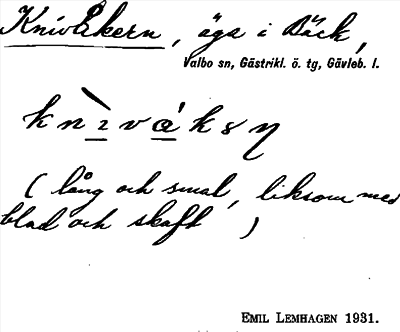 Knivåkern, äga i Bäck,
Valbo sn, Gästrikl. ö. tg, Gävleb. l.
(lång och smal, liksom med
blad och skaft )
EMIL LEMHAGEN 1931.